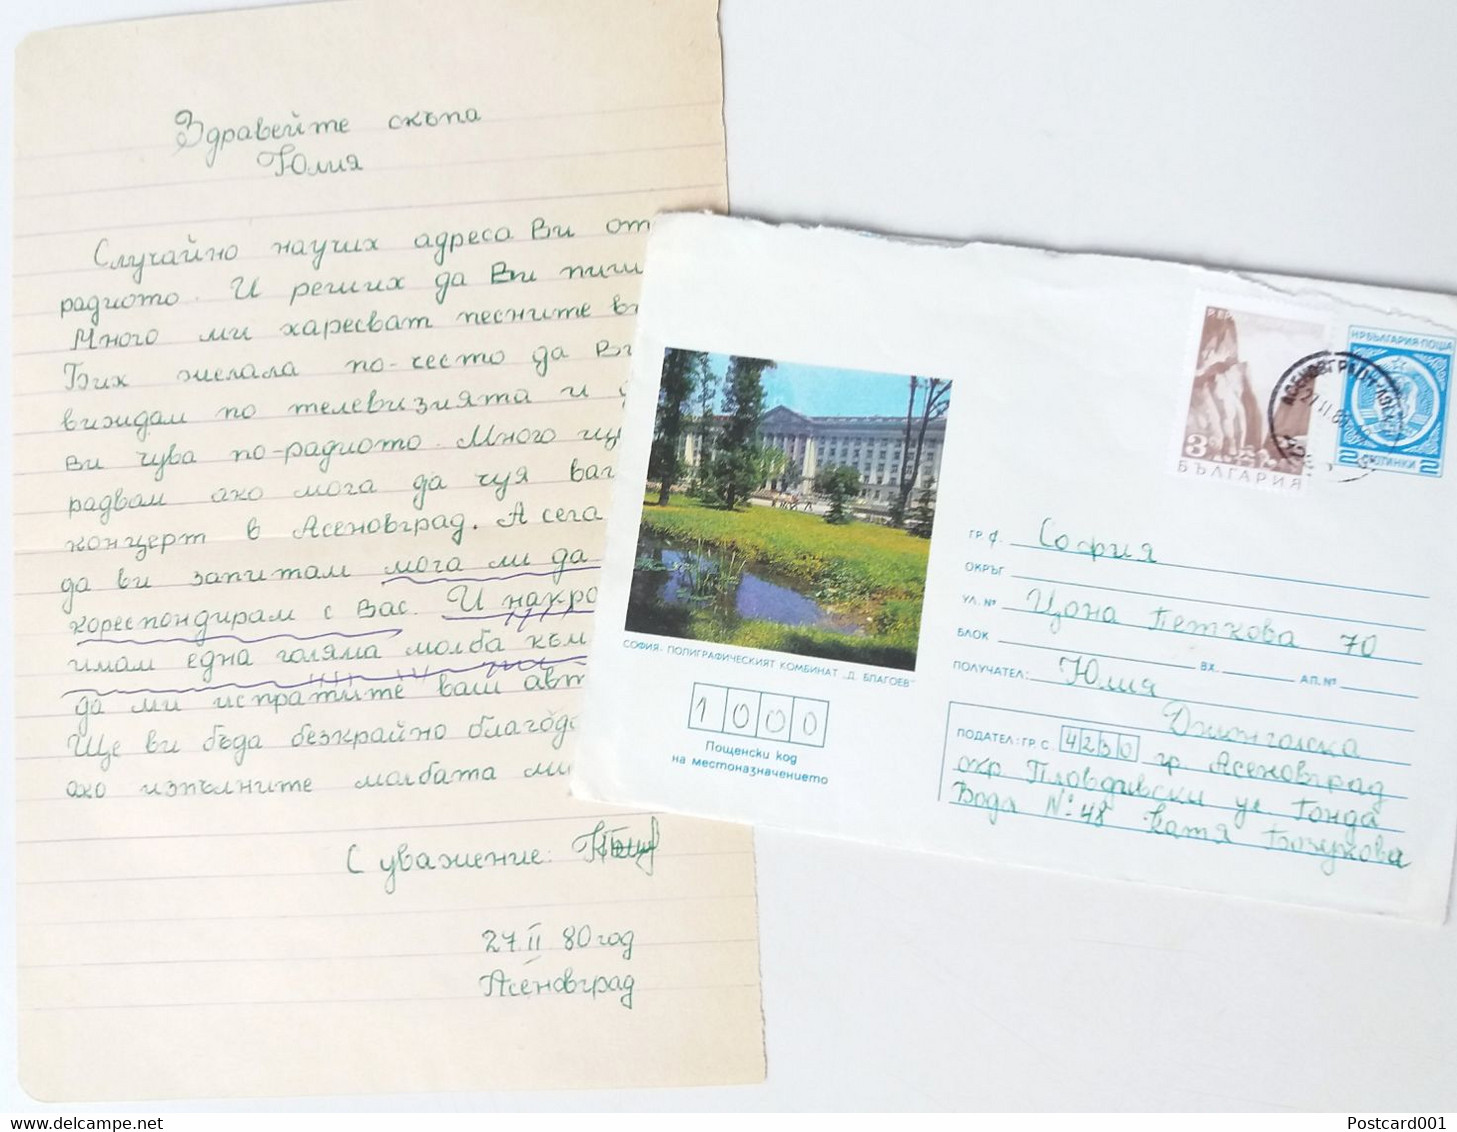 Здравейте скъпа
Юлия
Случайно научих адреса Ви от
радиото. И реших да Ви пиш
Много ми харесват песните
Бих желала по-често да
виждам по телевизията и
Ви чува по-радиото. Много
радвам ако мога да чуя
концерт в Асеновград. А сега
да ви запитам мога ли да
кореспондирам с Вас. И накра
имам една голяма молба към
да ми испратите ваш авт
Ще ви бъда безкрайно благода
ако изпълните молбата ми
С уважение:
27 II 80 год
Асеновград
3
БЪЛГАРИЯ
НРБЪЛГАРИЯ ПОЩА
2 СТОТИНКИ 2
АСЕНОВГРАД
27.II.80
СОФИЯ - ПОЛИГРАФИЧЕСКИЯТ КОМБИНАТ „Д. БЛАГОЕВ"
1000
Пощенски код
на местоназначението
ГР. С. София
ОКРЪГ
УЛ. № Цона Петкова 70
БЛОК ВХ. АП. №
ПОЛУЧАТЕЛ: Юлия
Джонголска
ПОДАТЕЛ: ГР. С. 4230 гр Асеновград
окр Пловдивски ул Гонда
Вода №: 48 Катя Бозукова
www.delcampe.net
Postcard001